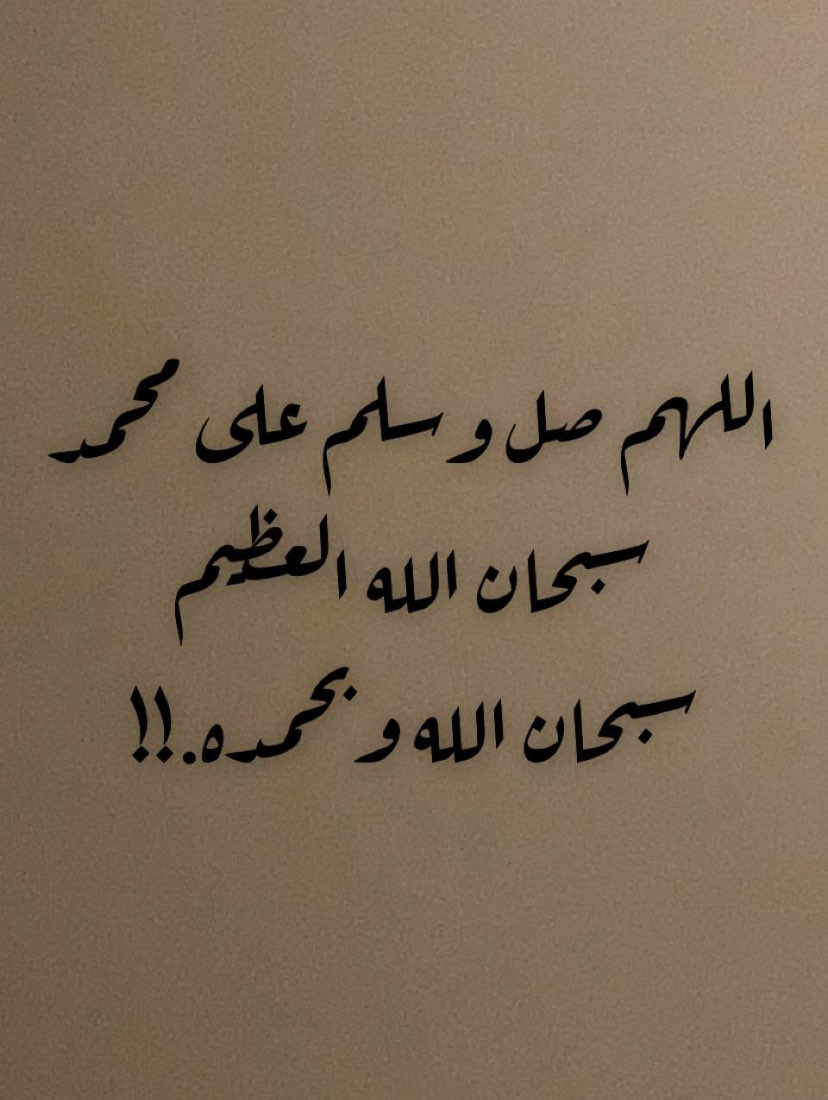 اللهم صل و سلم على محمد
سبحان الله العظيم
سبحان الله و بحمده.!!